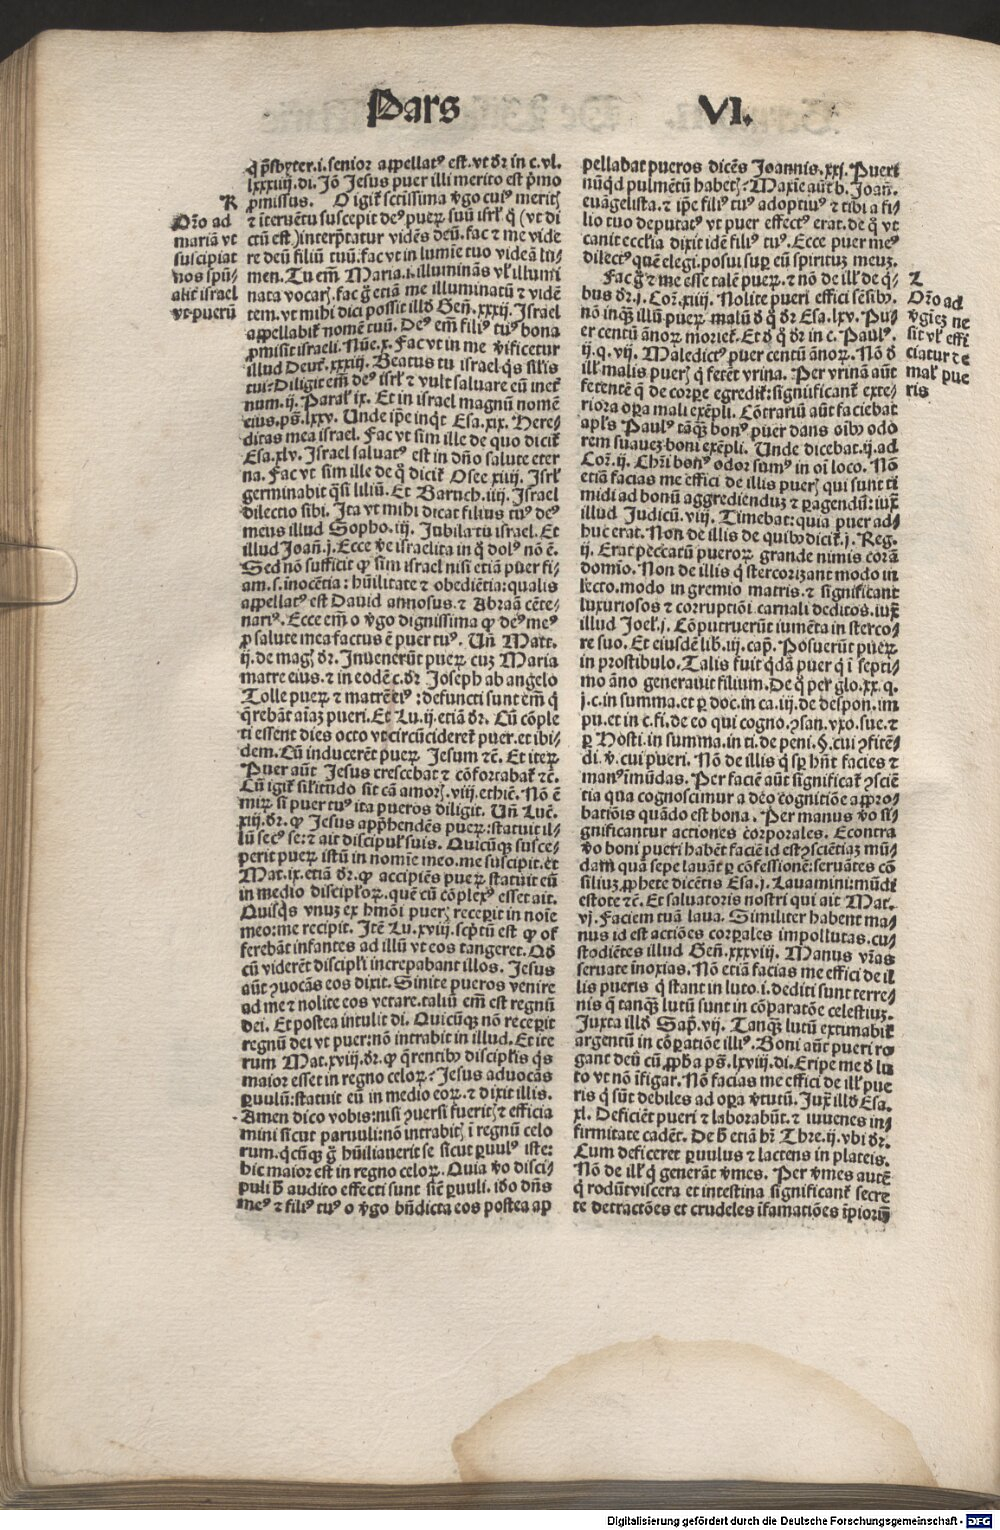 Pars VI.
q̇ p̃sbyter.i.senior appellatꝰ est.vt dr̃ in c.vl.
lxxxiiij.di. Jō Jesus puer illi merito est p̃mo
ꝓmissus. O igit̃ sctissima v̾go cuiꝰ meritꝭ
⁊ ĩteruẽtu suscepit deꝰ pueꝝ suũ isrl̃ q̃ (vt di
ctũ est) interp̃tatur vidẽs deũ. fac ⁊ me vide
re deũ filiũ tuũ. fac vt in lumĩe tuo videã lu⸗
men. Tu em̃ Maria.i. illuminãs vl̃ illumi
nata vocarꝭ. fac g̃ etiã me illuminatũ ⁊ vidẽ
tem. vt mihi dici possit illđ Geñ. xxxij. Israel
appellabit̃ nomẽ tuũ. Deꝰ em̃ filiꝰ tuꝰ bona
ꝓmisit israeli. Nũe.x. Fac vt in me v̾ificetur
illud Deut̃. xxxiij. Beatus tu israel q̃s sil̃is
tui? Diligit em̃ deꝰ isrl̃ ⁊ vult saluare eũ inet̃
num. ij. Paral̃ ix. Et in israel magnũ nomẽ
eius. ps̃. lxxv. Unde ip̃e inqt̃ Esa. xix. Here⸗
ditas mea israel. Fac vt sim ille de quo dicit̃
Esa. xlv. Israel saluatꝰ est in dño salute eter
na. Fac vt sim ille de q̃ dicit̃ Osee xiiij. Isrl̃
germinabit q̃si liliũ. Et Baruch. iiij. Israel
dilectio sibi. Ita vt mihi dicat filius tuꝰ deꝰ
meus illud Sopho. iij. Jubila tu israel. Et
illud Joañ. j. Ecce v̾e israelita in q̃ dolꝰ nõ ẽ.
Sed nõ sufficit ꝙ sim israel nisi etiã puer fi⸗
am. s. inocẽtia: hũilitate ⁊ obediẽtia: qualis
appellatꝰ est Dauid annosus. ⁊ Abraã cẽte⸗
nariꝰ. Ecce em̃ o v̾go dignissima ꝙ deꝰ meꝰ
ꝓ salute mea factus ẽ puer tuꝰ. Uñ Matt.
ij. de magꝭ dr̃. Inuenerũt pueꝝ cuꝫ Maria
matre eius. ⁊ in eodẽ c. dr̃ Joseph ab angelo
Tolle pueꝝ ⁊ matrẽ eiꝰ: defuncti sunt em̃ q̃
q̃rebãt aĩaꝫ pueri. Et Lu. ij. etiã dr̃. Cũ cõple
ti essent dies octo vt circũcideret̃ puer. et ibi⸗
dem. Cũ inducerẽt pueꝝ Jesum ⁊c̃. Et iteꝝ
Puer aũt Jesus crescebat ⁊ cõfortabat̃ ⁊c̃.
Cũ igit̃ sil̃itudo sit cã amorꝭ. viij. ethic̃. Nõ ẽ
mirꝝ si puer tuꝰ ita pueros diligit. Uñ Luc̃.
xiij. dr̃. ꝙ Jesus app̃hendẽs pueꝝ: statuit il⸗
lũ secꝰ se: ⁊ ait discipul̃ suis. Quicũqꝫ susce⸗
perit pueꝝ istũ in nomĩe meo. me suscipit. et
Mat. ix. etiã dr̃. ꝙ accipiẽs pueꝝ statuit eũ
in medio discipl̃oꝝ. quẽ cũ cõplexꝰ esset ait.
Quisq̃s vnuꝫ ex hmõi puerꝭ receꝑit in noĩe
meo: me recipit. Itẽ Lu. xviij. scp̃tũ est ꝙ of
ferebãt infantes ad illũ vt eos tangeret. Qđ
cũ viderẽt discipl̃i increpabant illos. Jesus
aũt ꝯuocãs eos dixit. Sinite pueros venire
ad me ⁊ nolite eos vetare. taliũ em̃ est regnũ
dei. Et postea intulit di. Quicũqꝫ nõ receꝑit
regnũ dei vt puer: nõ intrabit in illud. Et ite
rum Mat. xviij. dr̃. ꝙ q̃rentibꝰ discipl̃is q̃s
maior esset in regno celoꝝ? Jesus aduocãs
ꝑuulũ: statuit eũ in medio eoꝝ. ⁊ dixit illis.
Amen dico vobis: nisi ꝯuersi fueritꝭ ⁊ efficia
mini sicut paruuli: nõ intrabitꝭ ĩ regnũ celo
rum. q̃cũqꝫ g̃ hũiliauerit se sicut ꝑuulꝰ iste:
hic maior est in regno celoꝝ. Quia v̾o disci⸗
puli h̃ audito effecti sunt sic̃ ꝑuuli. iđo dñs
meꝰ ⁊ filiꝰ tuꝰ o v̾go bñdicta eos postea ap
R
Or̃o ad
mariã vt
suscipiat
nos spũ⸗
alit̃ israel
vt puerũ
pellabat pueros dicẽs Joannis. xxj. Pueri
nũqđ pulmẽtũ habetꝭ? Maxĩe aũt b. Joañ.
euãgelista. ⁊ ip̃e filiꝰ tuꝰ adoptiuꝰ ⁊ tibi a fi⸗
lio tuo deputatꝰ vt puer effectꝰ erat. de q̃ vt
canit eccl̃ia dixit idẽ filiꝰ tuꝰ. Ecce puer meꝰ
dilectꝰ quẽ elegi. posui suꝑ eũ spirituꝫ meuꝫ.
Fac g̃ ⁊ me esse talẽ pueꝝ. ⁊ nõ de ill̃ de q̃⸗
bus dr̃. j. Cor̃. xiiij. Nolite pueri effici sẽsibꝰ.
nõ inqꝫ illũ pueꝝ malũ đ q̃ dr̃ Esa. lxv. Pu⸗
er centũ ãnoꝝ moriet̃. Et đ q̃ dr̃ in c. Paulꝰ.
ij. q. vij. Maledictꝰ puer centũ ãnoꝝ. Nõ đ
ill̃ malis puerꝭ q̃ fetẽt vrina. Per vrinã aũt
fetentẽ q̃ de corꝑe egredit̃: significant̃ exte⸗
riora oꝑa mali exẽpli. Cõtrariũ aũt faciebat
apl̃s Paulꝰ tãqꝫ bonꝰ puer dans oĩbꝰ odo
rem suaueꝫ boni exẽpli. Unde dicebat. ij. ad
Cor̃. ij. Chr̃i bonꝰ odor sumꝰ in oĩ loco. Nõ
etiã facias me effici de illis puerꝭ qui sunt ti
midi ad bonũ aggrediẽduꝫ ⁊ ꝑagendũ: iux̃
illud Judicũ. viij. Timebat: quia puer ad⸗
huc erat. Non de illis de quibꝰ dicit̃. j. Reg.
ij. Erat peccatũ pueroꝝ grande nimis corã
domĩo. Non de illis q̃ stercorizant modo in
lecto. modo in gremio matris. ⁊ significant
luxuriosos ⁊ corruptiõi carnali deditos. iux̃
illud Joel̃. j. Cõputruerũt iumẽta in sterco⸗
re suo. Et eiusdẽ lib. iij. cap̃. Posuerũt pueꝝ
in prostibulo. Talis fuit q̃dã puer q̃ ĩ septi⸗
mo ãno generauit filium. De q̃ per glo. xx. q.
j. c. in summa. et ꝑ doc. in ca. iij. de despon. im
pu. et in c. fi. de eo qui cogno. ꝯsan. vxo. sue. ⁊
ꝑ Hosti. in summa. in ti. de peni. §. cui ꝯfitẽ⸗
di. v̾. cui pueri. Nõ de illis q̃ sꝑ hñt facies ⁊
manꝰ ĩmũdas. Per faciẽ aũt significat̃ ꝯsciẽ
tia qua cognoscimur a deo cognitiõe appro⸗
batiõis quãdo est bona. Per manus v̾o si⸗
gnificantur actiones corporales. Econtra
v̾o boni pueri habẽt faciẽ id est ꝯsciẽtiaꝫ mũ⸗
dam quã sepe lauãt ꝑ cõfessionẽ: seruãtes cõ
siliuꝫ ꝓphete dicẽtis Esa. j. Lauamini: mũdi
estote ⁊c̃. Et saluatoris nostri qui ait Mat.
vj. Faciem tuã laua. Similiter habent ma⸗
nus id est actiões corꝑales impollutas. cu⸗
stodiẽtes illud Geñ. xxxviij. Manus vr̃as
seruate inoxias. Nõ etiã facias me effici de il
lis pueris q̃ stant in luto. i. dediti sunt terre⸗
nis q̃ tanqꝫ lutũ sunt in cõparatõe celestiuꝫ.
Juxta illđ Sap̃. vij. Tanqꝫ lutũ extimabit̃
argentũ in cõꝑatiõe illiꝰ. Boni aũt pueri ro
gant deũ cũ ꝓp̃ha ps̃. lxviij. di. Eripe me đ lu
to vt nõ ĩfigar. Nõ facias me effici de ill̃ pue
ris q̃ sũt debiles ad oꝑa v̾tutũ. Jux̃ illđ Esa.
xl. Deficiẽt pueri ⁊ laborabũt. ⁊ iuuenes in⸗
firmitate cadẽt. De h̃ etiã hr̃ Thre. ij. vbi dr̃.
Cum deficeret ꝑuulus ⁊ lactens in plateis.
Nõ de ill̃ q̃ generãt v̾mes. Per v̾mes autẽ
q̃ rodũt viscera et intestina significant̃ secre
te detractões et crudeles ĩfamatiões ĩpioruꝫ
Z
Or̃o ad
v̾gieꝫ ne
sit vl̃ effi
ciatur de
mal̃ pue
ris
Digitalisierung gefördert durch die Deutsche Forschungsgemeinschaft - DFG